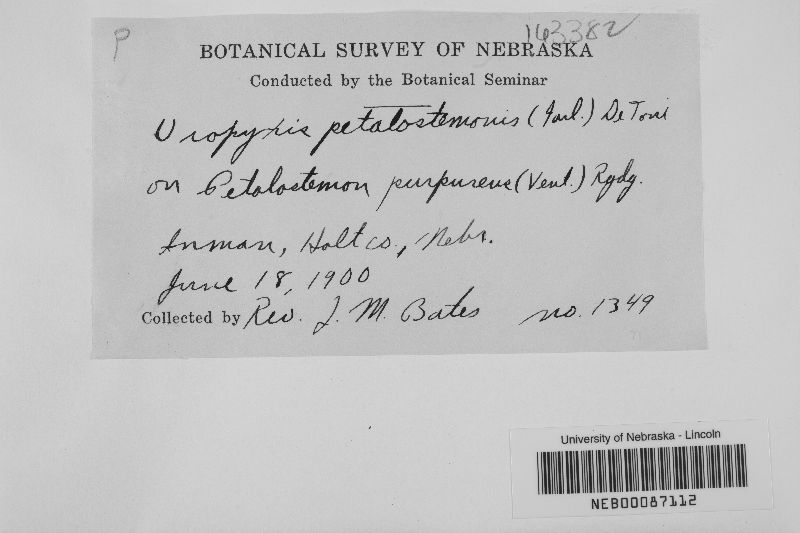 P 163382
BOTANICAL SURVEY OF NEBRASKA
Conducted by the Botanical Seminar
Uropyxis petalostemonis (Farl.) DeToni
on Petalostemon purpureus (Vent.) Rydg.
Inman, Holt co., Nebr.
June 18, 1900
Collected by Rev. J. M. Bates no. 1349
University of Nebraska - Lincoln
NEB00087112